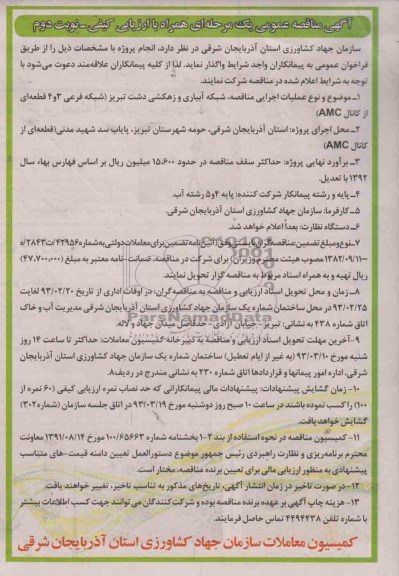 آگهی مناقصه عمومی یک مرحله‌ای همراه با ارزیابی کیفی ـ نوبت دوم
سازمان جهاد کشاورزی استان آذربایجان شرقی در نظر دارد، انجام پروژه با مشخصات ذیل را از طریق
فراخوان عمومی به پیمانکاران واجد شرایط واگذار نماید. لذا از کلیه پیمانکاران علاقه‌مند دعوت می‌شود با
توجه به شرایط اعلام شده در مناقصه شرکت نمایند.
۱ـ موضوع و نوع عملیات اجرایی مناقصه، شبکه آبیاری و زهکشی دشت تبریز (شبکه فرعی ۳و۴ قطعه‌ای
از کانال AMC)
۲ـ محل اجرای پروژه: استان آذربایجان شرقی، حومه شهرستان تبریز، پایاب سد شهید مدنی(قطعه‌ای از
کانال AMC)
۳ـ برآورد نهایی پروژه: حداکثر سقف مناقصه در حدود ۱۵،۶۰۰ میلیون ریال بر اساس فهارس بهاء سال
۱۳۹۲ با تعدیل.
۴ـ پایه و رشته پیمانکار شرکت کننده: پایه ۴و۵ رشته آب.
۵ـ کارفرما: سازمان جهاد کشاورزی استان آذربایجان شرقی.
۶ـ دستگاه نظارت: بعداً اعلام خواهد شد.
۷ـ نوع و مبلغ تضمین مناقصه‌گر: می‌بایستی وفق (آئین‌نامه تضمین برای معاملات دولتی به شماره ۴۲۹۵۶/ت۲۸۴۳
۱۳۸۲/۰۹/۱۱ مصوب هیئت محترم وزیران) برای شرکت در مناقصه، ضمانت نامه معتبر به مبلغ (۴۷.۷۰۰.۰۰۰)
ریال تهیه و به همراه اسناد مربوط به مناقصه گزار تحویل نمایند.
۸ـ زمان و محل تحویل اسناد ارزیابی و مناقصه به مناقصه گران: در اوقات اداری از تاریخ ۹۳/۰۲/۲۰ لغایت
۹۳/۰۲/۲۵ در محل ساختمان شماره یک سازمان جهاد کشاورزی استان آذربایجان شرقی مدیریت آب و خاک
اتاق شماره ۴۳۸ به نشانی: تبریز ـ خیابان آزادی ـ حدفاصل میدان جهاد و لاله.
۹ـ آخرین مهلت تحویل اسناد ارزیابی و مناقصه به دبیرخانه کمیسیون معاملات: حداکثر تا ساعت ۱۴ روز
شنبه مورخ ۹۳/۰۳/۱۰ (به غیر از ایام تعطیل) ساختمان شماره یک سازمان جهاد کشاورزی استان آذربایجان
شرقی، اداره امور پیمانها و قراردادها اتاق شماره ۲۳۰ به نشانی مندرج در ردیف۸.
۱۰ـ زمان گشایش پیشنهادات: پیشنهادات مالی پیمانکارانی که حد نصاب نمره ارزیابی کیفی (۶۰ نمره از
۱۰۰) را کسب نموده باشند در ساعت ۱۰ صبح روز دوشنبه مورخ ۹۳/۰۳/۱۹ در اتاق جلسه سازمان (شماره۳۰۲)
گشایش خواهد یافت.
۱۱ـ کمیسیون مناقصه در نحوه استفاده از بند ۴-۱ بخشنامه شماره ۱۰۰/۶۵۶۶۳ مورخ ۱۳۹۱/۰۸/۱۴ معاونت
محترم برنامه‌ریزی و نظارت راهبردی رئیس جمهور موضوع دستورالعمل تعیین دامنه قیمت‌های متناسب
پیشنهادی به منظور ارزیابی مالی برای تعیین برنده مناقصه، مختار است.
۱۲ـ در صورت تاخیر در زمان انتشار آگهی، تاریخ‌های مذکور به تناسب تاخیر، تغییر خواهند یافت.
۱۳ـ هزینه چاپ آگهی بر عهده برنده مناقصه بوده و شرکت‌کنندگان می‌توانند جهت کسب اطلاعات بیشتر
با شماره تلفن ۴۴۹۴۴۳۸ تماس حاصل فرمایند.
کمیسیون معاملات سازمان جهاد کشاورزی استان آذربایجان شرقی
ParsNamadData